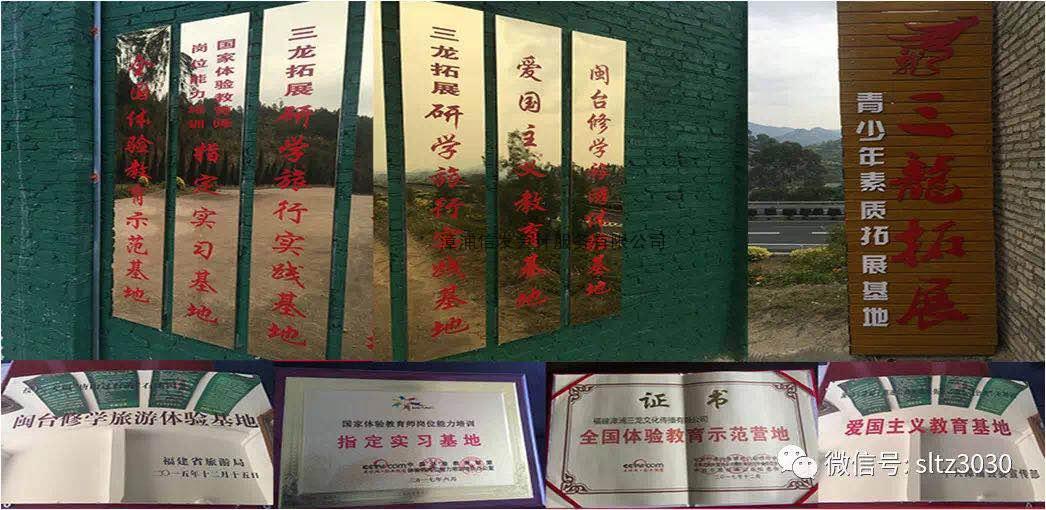 全国体验教育示范基地
国家体验教育师
岗位能力培训
指定实习基地
三龙拓展研学旅行实践基地
三龙拓展研学旅行实践基地
爱国主义教育基地
闽台修学旅游体验基地
漳浦信发
服务有限公司
三龍拓展
青少年素质拓展基地
闽台修学旅游体验基地
福建省旅游局
二〇一五年十二月十五日
国家体验教育师岗位能力培训
指定实习基地
cctv.com
二〇一七年六月
证书
福建漳浦三龙文化传播有限公司
全国体验教育示范营地
cctv.com
二〇一七年十二月
爱国主义教育基地
微信号: sltz3030